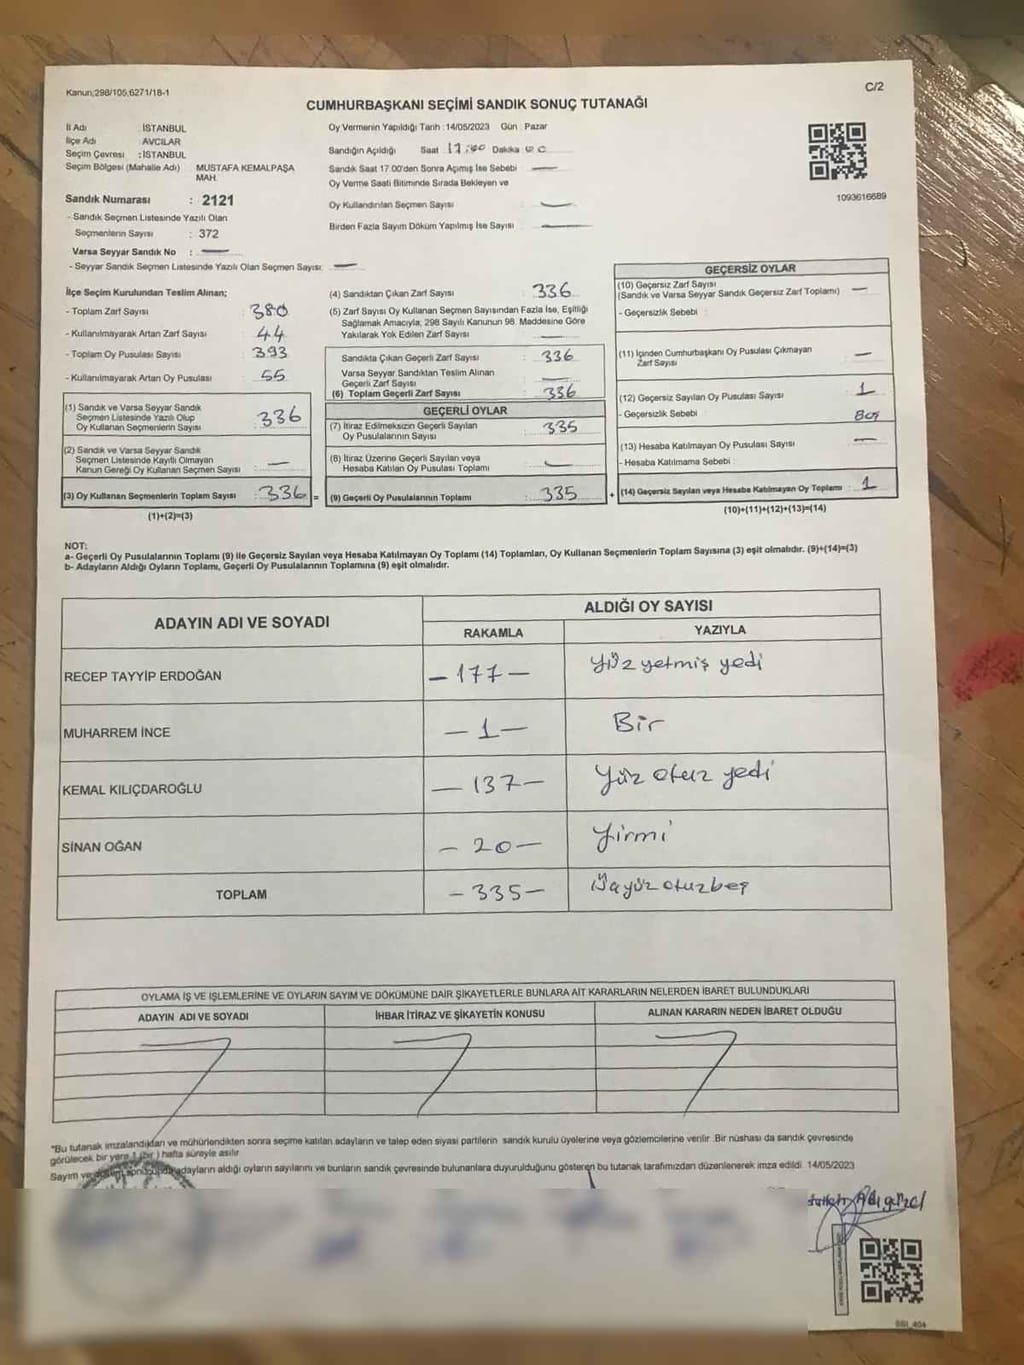 Kanun;298/105,6271/18-1
C/2
CUMHURBAŞKANI SEÇİMİ SANDIK SONUÇ TUTANAĞI
İl Adı : İSTANBUL
İlçe Adı : AVCILAR
Seçim Çevresi : İSTANBUL
Seçim Bölgesi (Mahalle Adı) MUSTAFA KEMALPAŞA MAH.
Sandık Numarası : 2121
- Sandık Seçmen Listesinde Yazılı Olan
Seçmenlerin Sayısı : 372
Varsa Seyyar Sandık No : —
- Seyyar Sandık Seçmen Listesinde Yazılı Olan Seçmen Sayısı: —
Oy Vermenin Yapıldığı Tarih :14/05/2023 Gün : Pazar
Sandığın Açıldığı Saat 17:00 Dakika
Sandık Saat 17.00'den Sonra Açımış İse Sebebi —
Oy Verme Saati Bitiminde Sırada Bekleyen ve
Oy Kullandırılan Seçmen Sayısı : —
Birden Fazla Sayım Döküm Yapılmış İse Sayısı : —
1093616689
İlçe Seçim Kurulundan Teslim Alınan;
- Toplam Zarf Sayısı : 380
- Kullanılmayarak Artan Zarf Sayısı : 44
- Toplam Oy Pusulası Sayısı : 393
- Kullanılmayarak Artan Oy Pusulası : 55
(1) Sandık ve Varsa Seyyar Sandık
Seçmen Listesinde Yazılı Olup
Oy Kullanan Seçmenlerin Sayısı : 336
(2) Sandık ve Varsa Seyyar Sandık
Seçmen Listesinde Kayıtlı Olmayan
Kanun Gereği Oy Kullanan Seçmen Sayısı : —
(3) Oy Kullanan Seçmenlerin Toplam Sayısı : 336 =
(1)+(2)=(3)
(4) Sandıktan Çıkan Zarf Sayısı : 336
(5) Zarf Sayısı Oy Kullanan Seçmen Sayısından Fazla İse, Eşitliği
Sağlamak Amacıyla; 298 Sayılı Kanunun 98. Maddesine Göre
Yakılarak Yok Edilen Zarf Sayısı : —
Sandıkta Çıkan Geçerli Zarf Sayısı : 336
Varsa Seyyar Sandıktan Teslim Alınan
Geçerli Zarf Sayısı : —
(6) Toplam Geçerli Zarf Sayısı : 336
GEÇERLİ OYLAR
(7) İtiraz Edilmeksizin Geçerli Sayılan
Oy Pusulalarının Sayısı : 335
(8) İtiraz Üzerine Geçerli Sayılan veya
Hesaba Katılan Oy Pusulası Toplamı : —
(9) Geçerli Oy Pusulalarının Toplamı : 335 +
GEÇERSİZ OYLAR
(10) Geçersiz Zarf Sayısı
(Sandık ve Varsa Seyyar Sandık Geçersiz Zarf Toplamı) : —
- Geçersizlik Sebebi :
(11) İçinden Cumhurbaşkanı Oy Pusulası Çıkmayan
Zarf Sayısı : —
(12) Geçersiz Sayılan Oy Pusulası Sayısı : 1
- Geçersizlik Sebebi : Boş
(13) Hesaba Katılmayan Oy Pusulası Sayısı : —
- Hesaba Katılmama Sebebi :
(14) Geçersiz Sayılan veya Hesaba Katılmayan Oy Toplamı : 1
(10)+(11)+(12)+(13)=(14)
NOT:
a- Geçerli Oy Pusulalarının Toplamı (9) ile Geçersiz Sayılan veya Hesaba Katılmayan Oy Toplamı (14) Toplamları, Oy Kullanan Seçmenlerin Toplam Sayısına (3) eşit olmalıdır. (9)+(14)=(3)
b- Adayların Aldığı Oyların Toplamı, Geçerli Oy Pusulalarının Toplamına (9) eşit olmalıdır.
ADAYIN ADI VE SOYADI
ALDIĞI OY SAYISI
RAKAMLA YAZIYLA
RECEP TAYYİP ERDOĞAN -177- Yüz yetmiş yedi
MUHARREM İNCE -1- Bir
KEMAL KILIÇDAROĞLU -137- Yüz otuz yedi
SİNAN OĞAN -20- Yirmi
TOPLAM -335- Üçyüz otuzbeş
OYLAMA İŞ VE İŞLEMLERİNE VE OYLARIN SAYIM VE DÖKÜMÜNE DAİR ŞİKAYETLERLE BUNLARA AİT KARARLARIN NELERDEN İBARET BULUNDUKLARI
ADAYIN ADI VE SOYADI
İHBAR İTİRAZ VE ŞİKAYETİN KONUSU
ALINAN KARARIN NEDEN İBARET OLDUĞU
"Bu tutanak imzalandıktan ve mühürlendikten sonra seçime katılan adayların ve talep eden siyasi partilerin sandık kurulu üyelerine veya gözlemcilerine verilir. Bir nüshası da sandık çevresinde
görülecek bir yere 1 (bir) hafta süreyle asılır
Sayım ve adayların aldığı oyların sayılarını ve bunların sandık çevresinde bulunanlara duyurulduğunu gösteren bu tutanak tarafımızdan düzenlenerek imza edildi. 14/05/2023
Adıgüzel